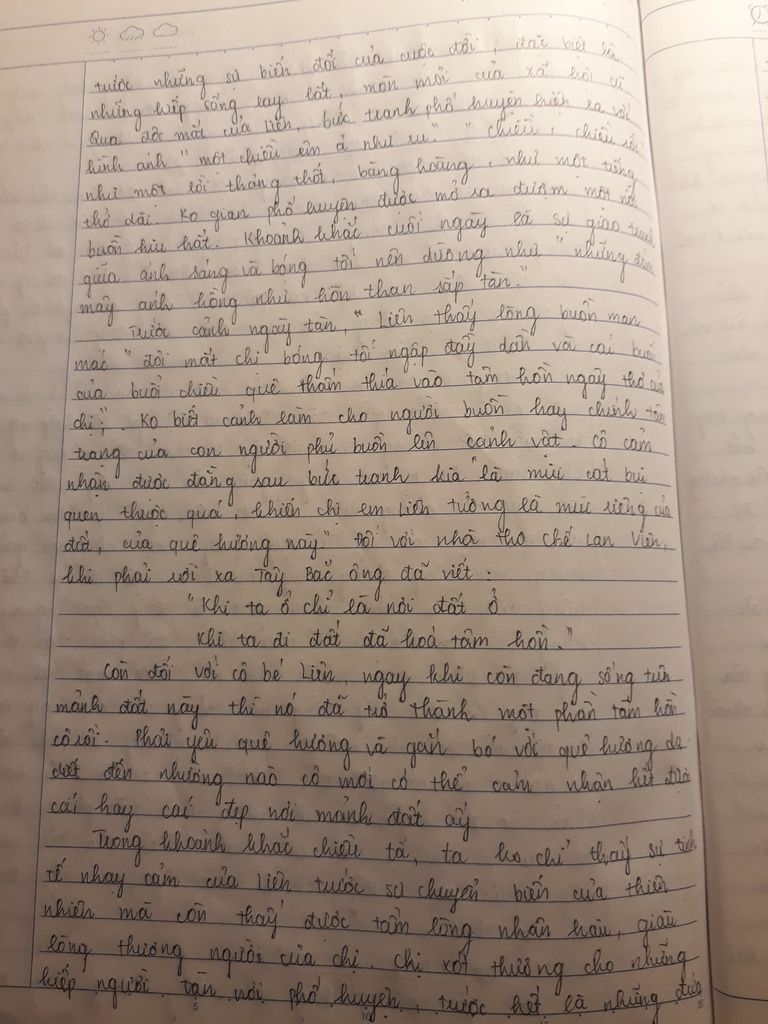 trước những sự biến đổi của cuộc đời, đặc biệt là
những kiếp sống lay lắt, mòn mỏi của xã hội cũ
Qua đôi mắt của Liên, bức tranh phố huyện hiện ra với
hình ảnh "một chiều êm ả như ru". "Chiều, chiều rồi"
như một lời thảng thốt, bâng hoàng, như một tiếng
thở dài. Ko gian phố huyện được mở ra đượm một nỗi
buồn hiu hắt. Khoảnh khắc cuối ngày là sự giao tranh
giữa ánh sáng và bóng tối nên dường như "những đám
mây ánh hồng như hòn than sắp tàn."
Trước cảnh ngày tàn, "Liên thấy lòng buồn man
mác" "đôi mắt chị bóng tối ngập đầy dần và cái buồn
của buổi chiều quê thấm thía vào tâm hồn ngây thơ của
chị;". Ko biết cảnh làm cho người buồn hay chính tâm
trạng của con người phủ buồn lên cảnh vật. Cô cảm
nhận được đằng sau bức tranh kia "là mùi cát bụi
quen thuộc quá, khiến chị em Liên tưởng là mùi riêng của
đất, của quê hương này." Đối với nhà thơ Chế Lan Viên,
khi phải rời xa Tây Bắc ông đã viết :
"Khi ta ở chỉ là nơi đất ở
Khi ta đi đất đã hoá tâm hồn."
Còn đối với cô bé Liên, ngay khi còn đang sống trên
mảnh đất này thì nó đã trở thành một phần tâm hồn
cô rồi. Phải yêu quê hương và gắn bó với quê hương da
diết đến nhường nào cô mới có thể cảm nhận hết được
cái hay cái đẹp nơi mảnh đất ấy
Trong khoảnh khắc chiều tà, ta ko chỉ thấy sự tinh
tế nhạy cảm của Liên trước sự chuyển biến của thiên
nhiên mà còn thấy được tấm lòng nhân hậu, giàu
lòng thương người của chị. Chị xót thương cho những
kiếp người tàn nơi phố huyện, trước hết là những đứa